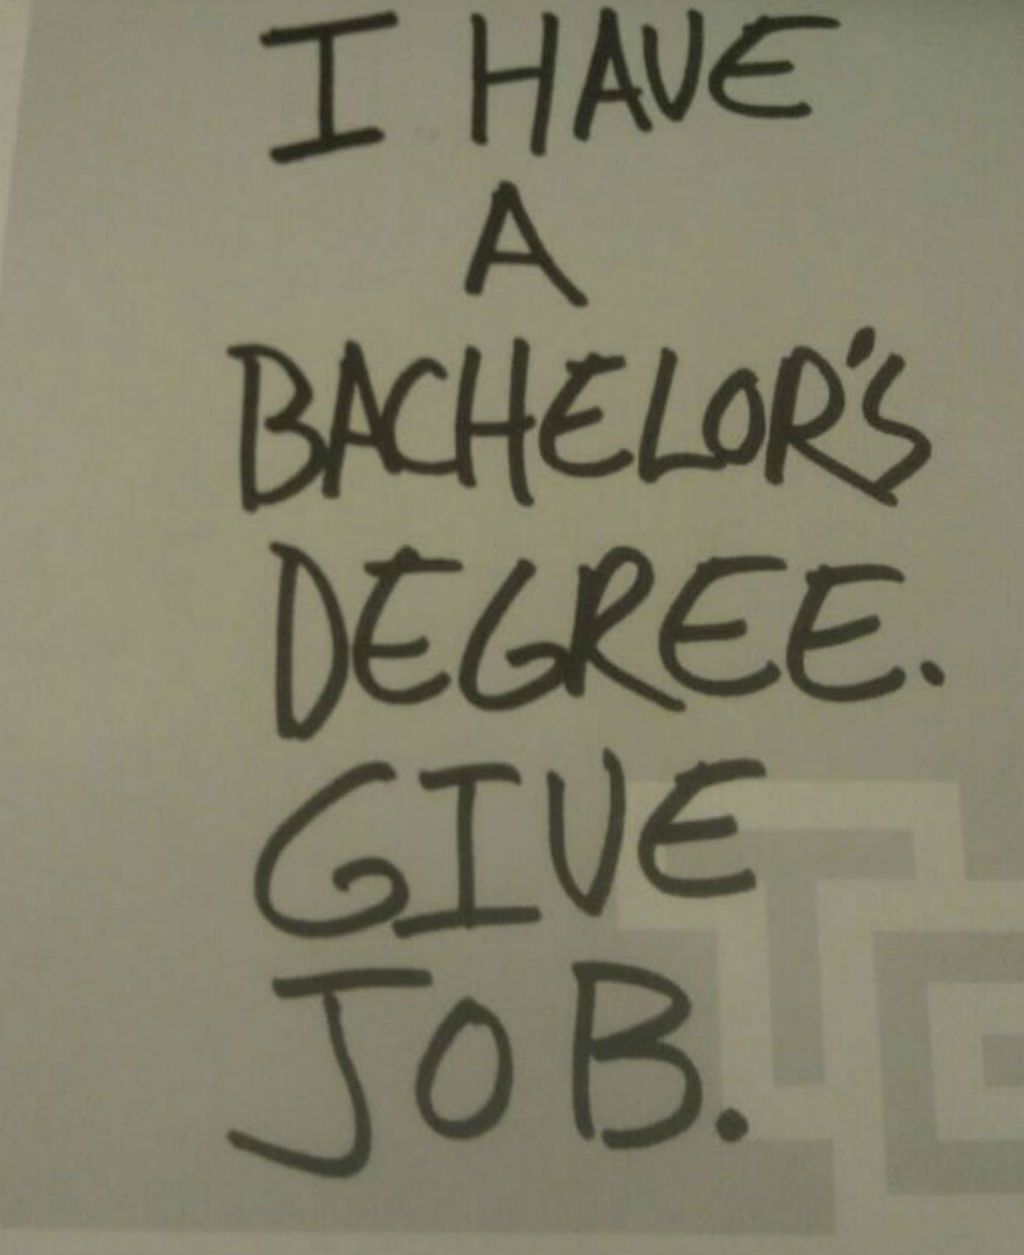 I HAVE
A
BACHELOR'S
DEGREE.
GIVE
JOB.